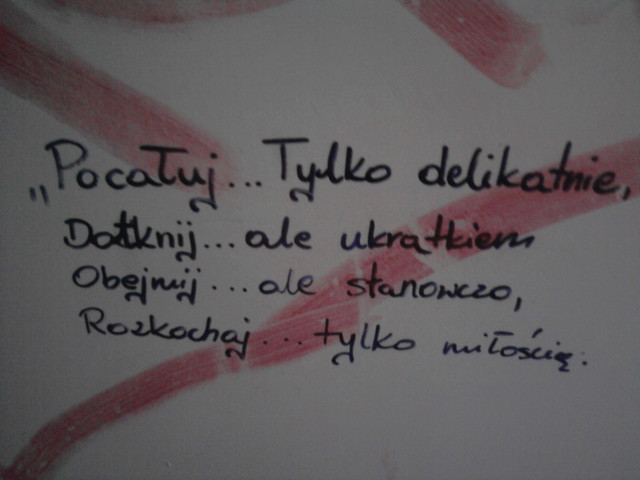 „Pocałuj...Tylko delikatnie,
Dotknij...ale ukratkiem
Obejmij...ale stanowczo,
Rozkochaj...tylko miłością.